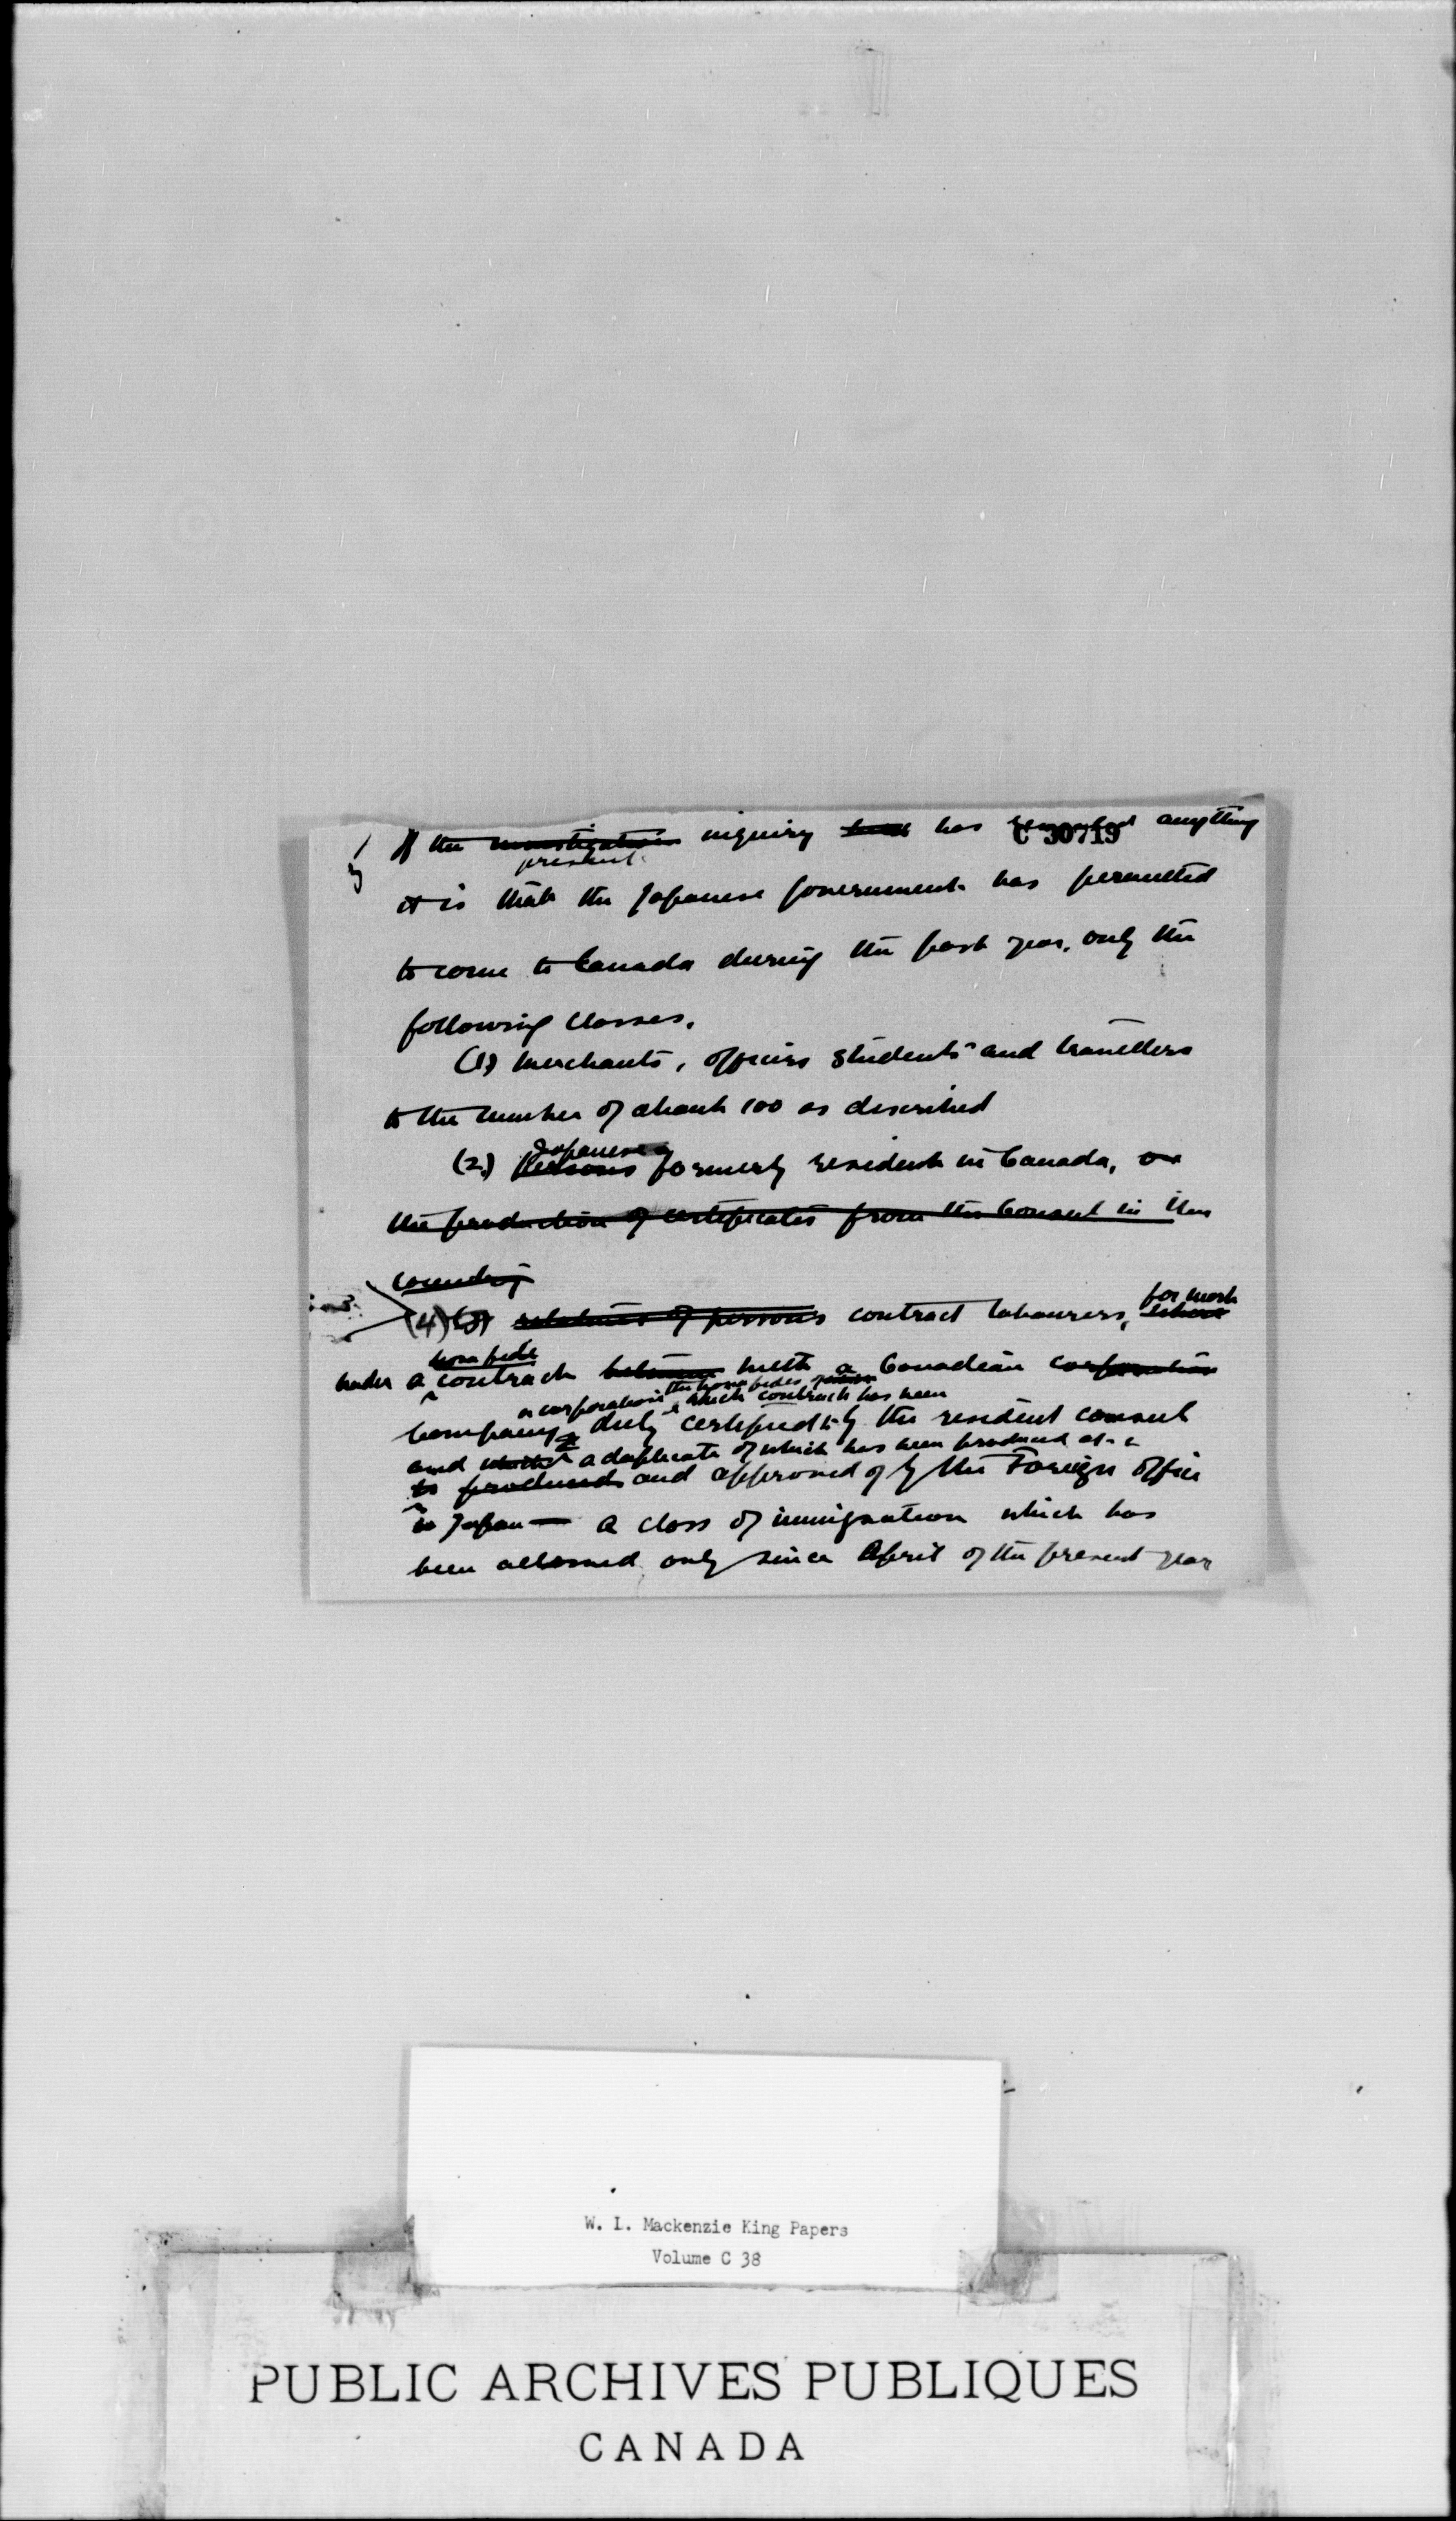 If the investigation inquiry has revealed anything
present
C 30719
it is that the Japanese Government has permitted
to come to Canada during the past year, only the
following classes.
(1) Merchants, officers students and travellers
to the number of about 100 as described
Japanese
(2) Persons formerly resident in Canada, on
the production of certificates from the Consul in this
country
for work
(4) (3) relatives of persons contract labourers,
bona fide
under a contract between with a Canadian corporation
or corporation the bona fides which contract has been
company duly certified by the resident consul
and a duplicate of which has been produced
to produced and approved of by the Foreign Office
in Japan — a class of immigration which has
been allowed only since April of the present year
W. I. Mackenzie King Papers
Volume C 38
PUBLIC ARCHIVES PUBLIQUES
CANADA